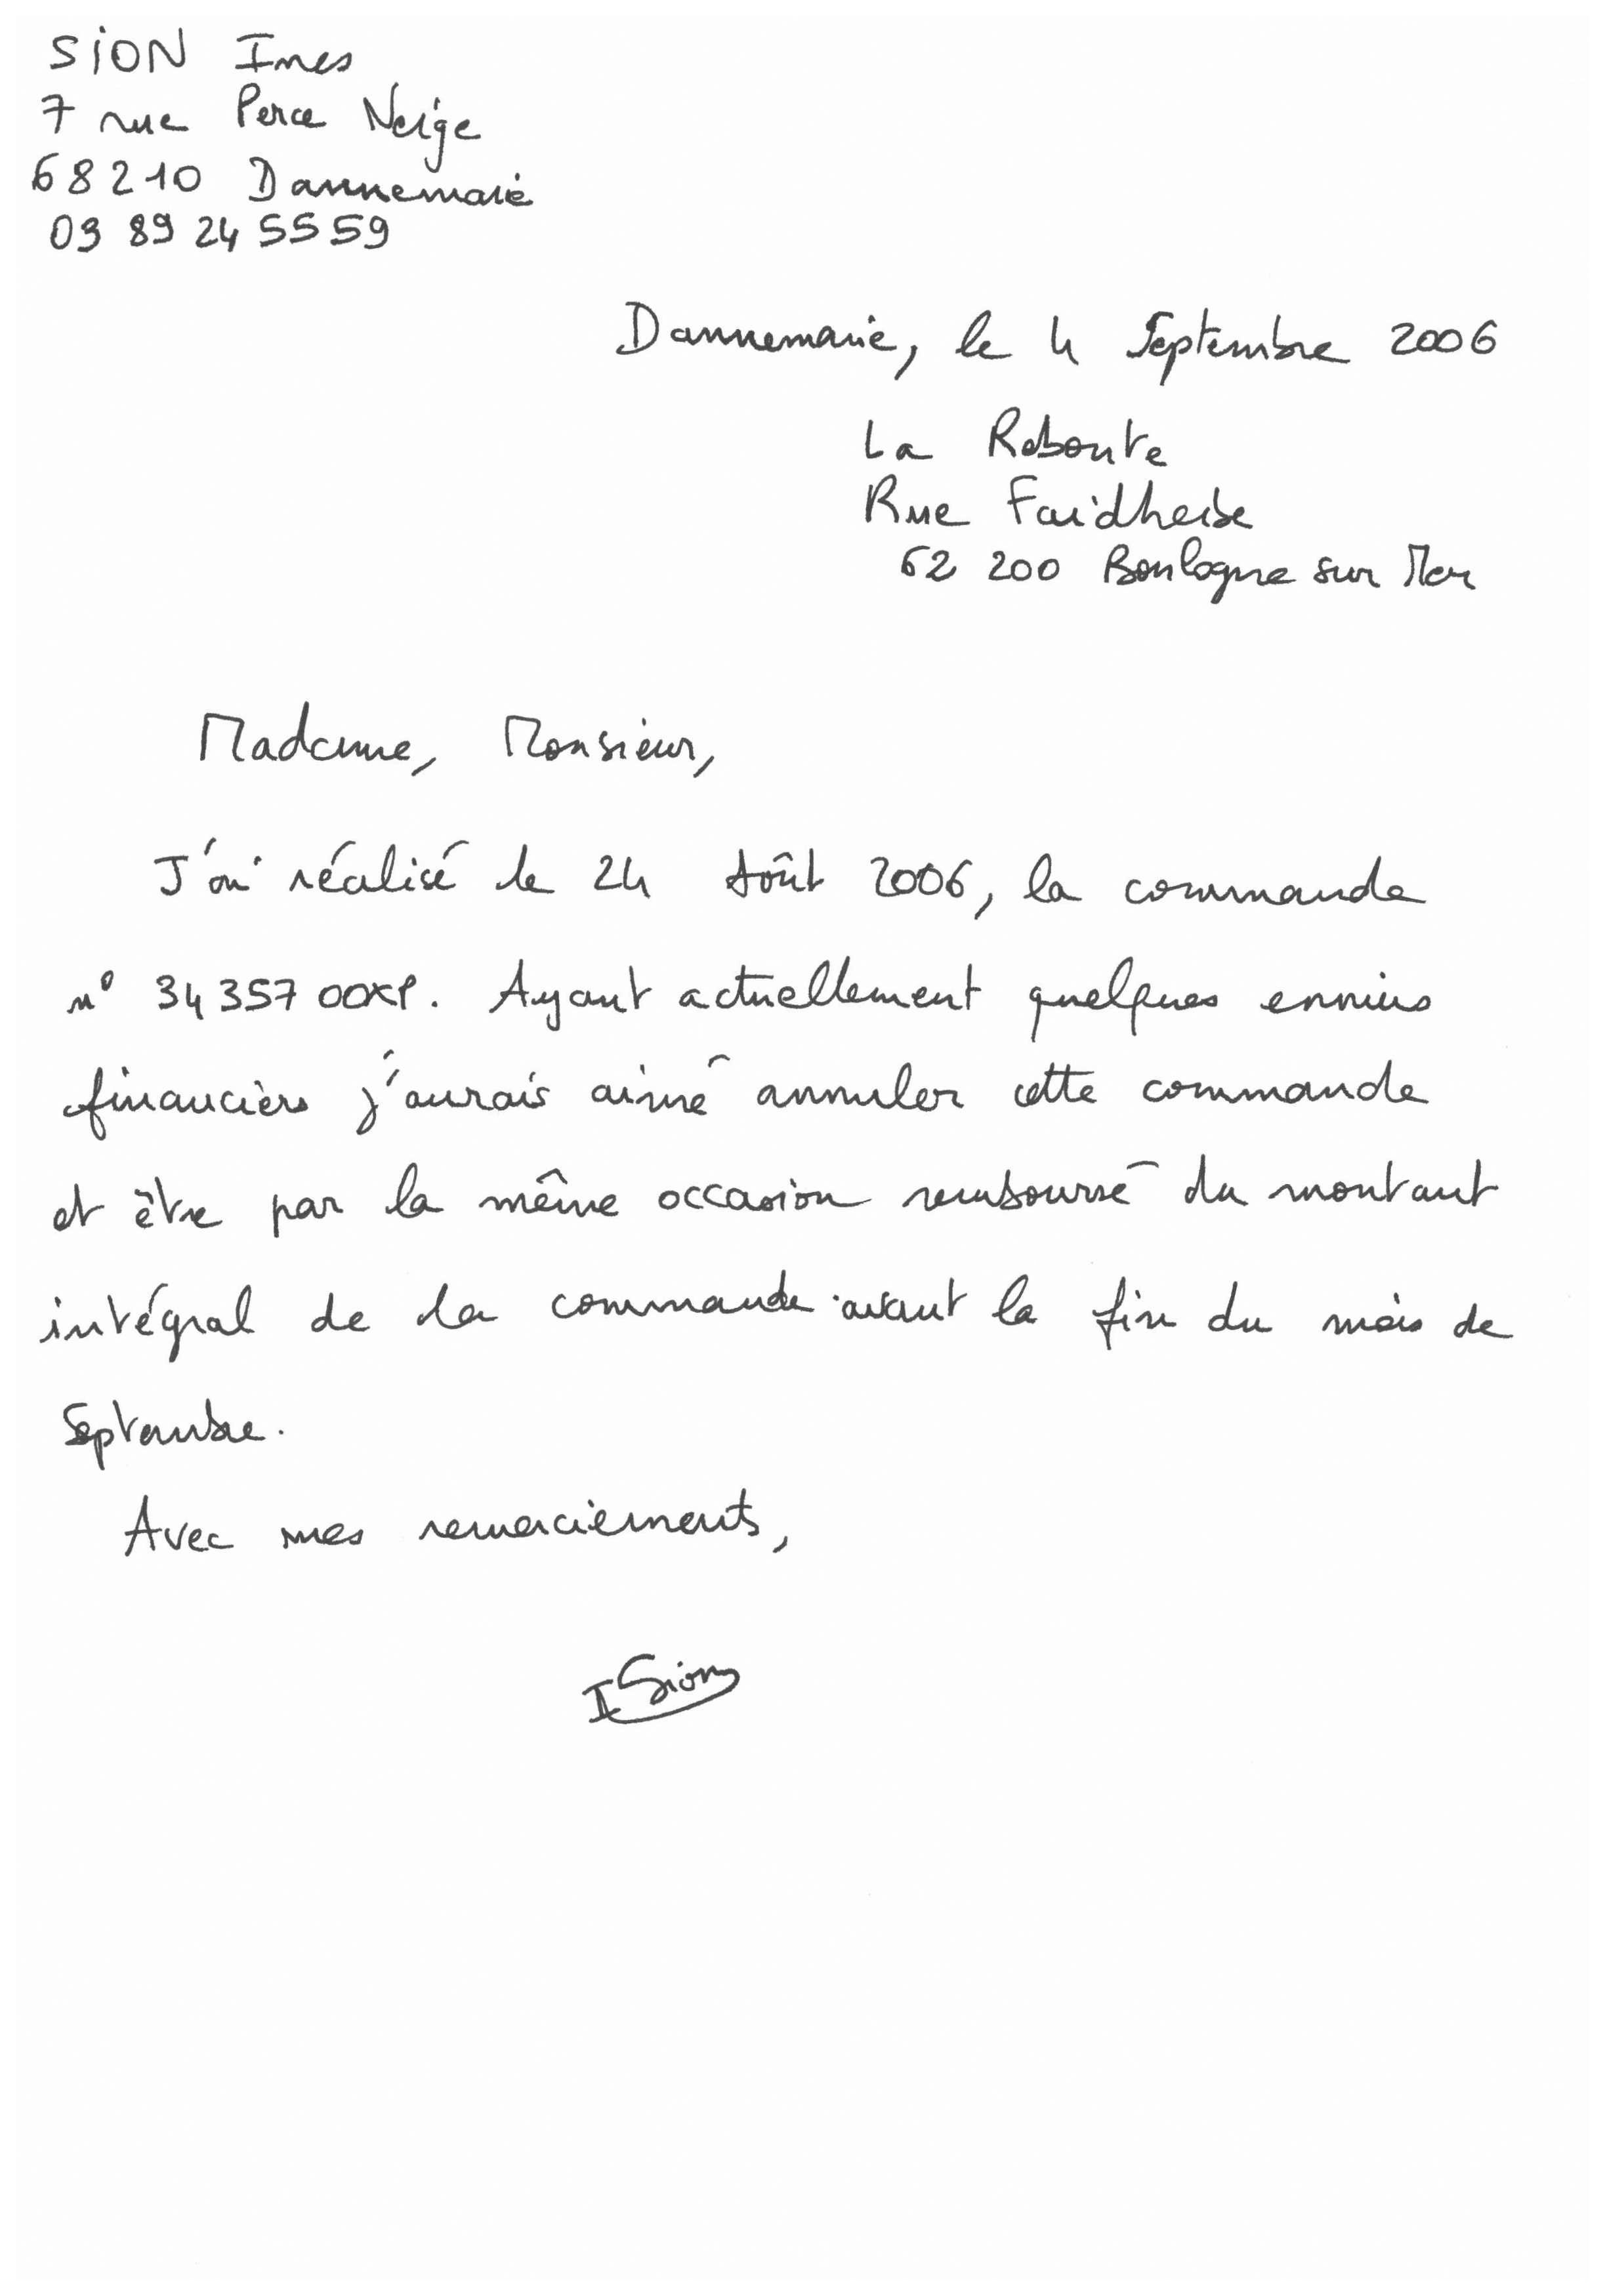 SION Ines
7 rue Perce Neige
68210 Dannemarie
03 89 24 55 59
Dannemarie, le 4 Septembre 2006
La Reboute
Rue Faidherbe
62 200 Boulogne sur Mer
Madame, Monsieur,
J'ai réalisé le 24 Août 2006, la commande
n° 34357 00XP. Ayant actuellement quelques ennuis
financiers j'aurais aimé annuler cette commande
et être par la même occasion remboursé du montant
intégral de la commande avant la fin du mois de
Septembre.
Avec mes remerciements,
I Sion